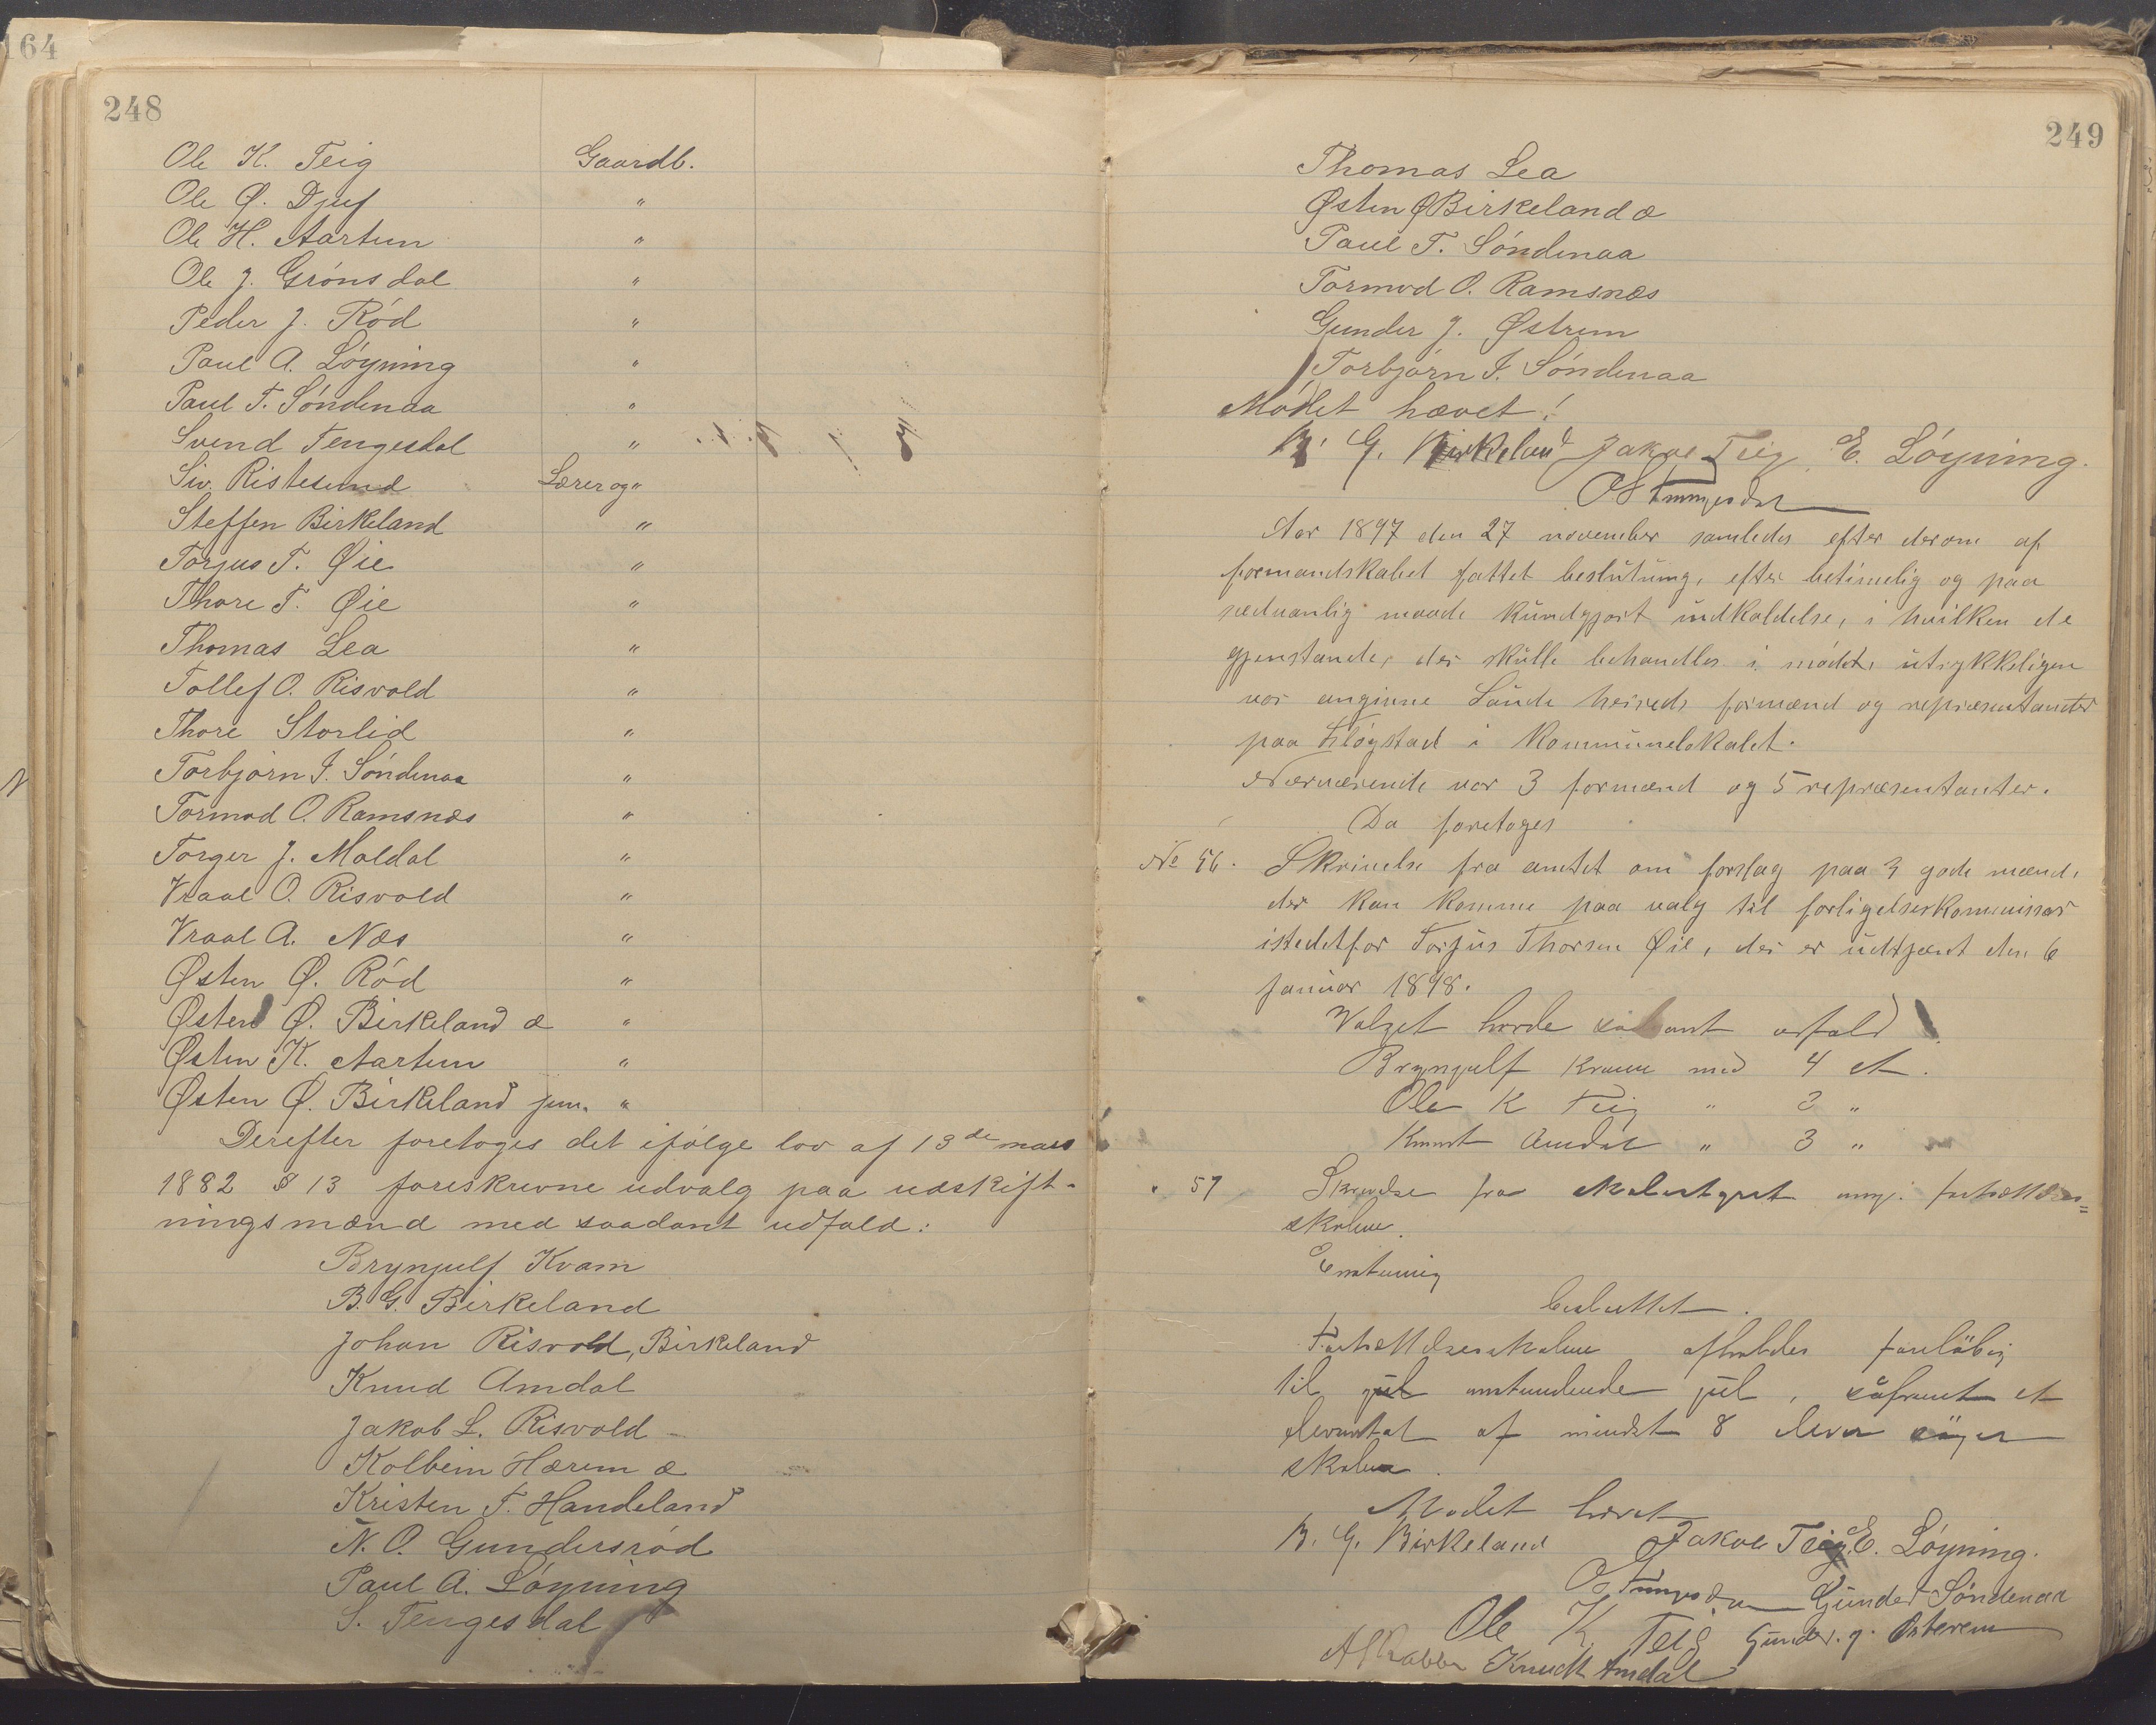 164
248
Ole K. Teig Gaardb.
Ole Ø. Djuf "
Ole H. Aartun "
Ole J. Grónsdal "
Peder J. Ród "
Paul A. Lóyning "
Paul T. Sóndenaa "
Svend Tengesdal "
Siv. Ristesund Lærer og "
Steffen Birkeland "
Torjus T. Øie "
Thore T. Øie "
Thomas Lea "
Tollef O. Risvold "
Thore Storlid "
Torbjórn I. Sóndenaa "
Tormod O. Ramsnæs "
Torger J. Moldal "
Vraal O. Risvold "
Vraal A. Næs "
Østen Ø. Ród "
Østen Ø. Birkeland æ "
Østen K. Aartun "
Østen Ø. Birkeland jun. "
Derefter foretoges det ifólge lov af 13de mars
1882 § 13 foreskrevne udvalg paa udskift-
ningsmænd med saadant udfald:
Brynjulf Kvam
B. G. Birkeland
Johan Risvold, Birkeland
Knud Amdal
Jakob L. Risvold
Kolbein Hærem æ
Kristen T. Handeland
N. O. Gundersród
Paul A. Lóyning
S. Tengesdal
249
Thomas Lea
Østen Ø Birkeland æ
Paul T. Sóndenaa
Tormod O. Ramsnæs
Gunder J. Østrem
Torbjórn I. Sóndenaa
Módet hævet!
B. G. Birkeland Jakob Teig E. Lóyning.
O S Tengesdal
Aar 1897 den 27 november samledes efter derom af
formandskabet fattet beslutning, efter betimelig og paa
sedvanlig maade kundgjort indkaldelse, i hvilken de
gjenstande, der skulle behandles i módet, utrykkeligen
var angivne Saude herreds formænd og repræsentanter
paa Fløgstad i Kommunelokalet.
Nærværende var 3 formænd og 5 repræsentanter.
Da foretoges
No 56. Skrivelse fra amtet om forslag paa 3 gode mænd,
der kan komme paa valg til forligelseskommissær
istedetfor Torjus Thorsen Øie, der er udtjent den 6
januar 1898.
Valget havde sådant udfald
Brynjulf Kvam med 4 st.
Ole K Teig " 3 "
Knut Amdal " 3 "
" 57 Skrivelse fra skolestyret ang. fortsættelses=
skolene.
Enstemmig
besluttet.
Fortsættelsesskolene afholdes foreløbig
til jul anstundende jul, såfremt et
elevantal af mindst 8 elever søger
skolen.
Mødet hævet
B. G. Birkeland Jakob Teig E. Lóyning.
O S Tengesdal Gunder Sóndenaa
Ole K. Teig Gunder. J. Østerem
Knudt Amdal